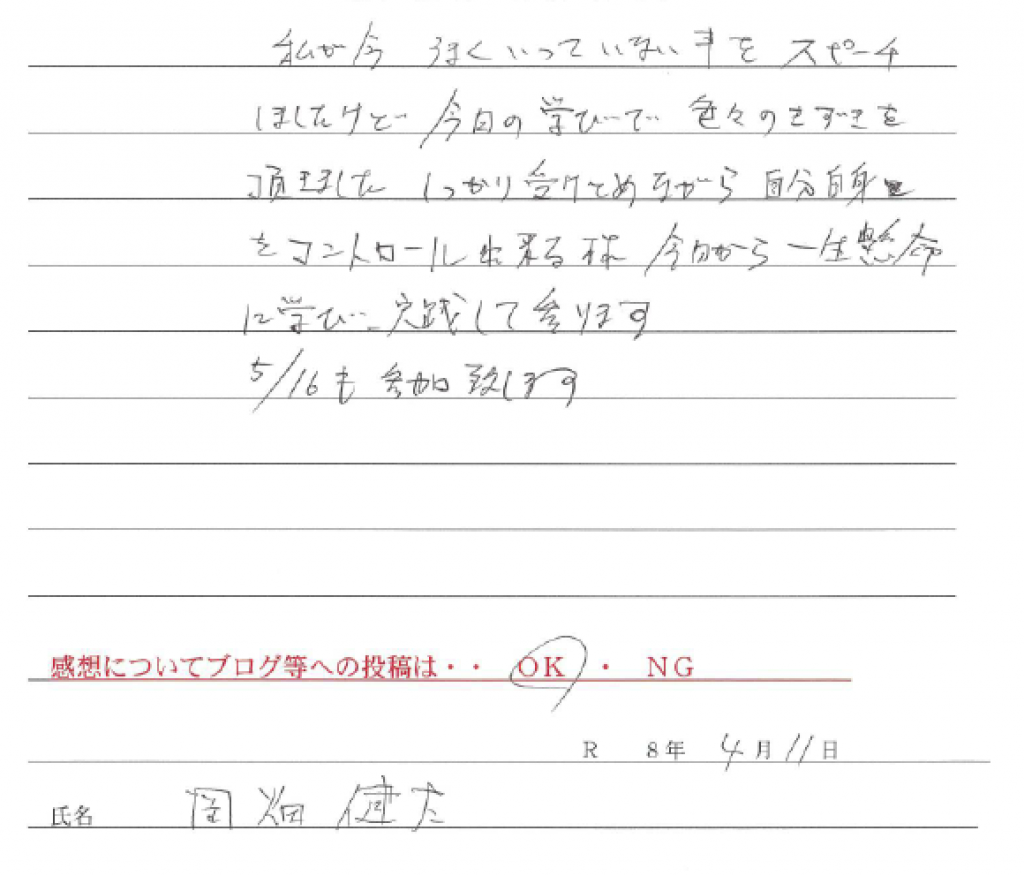 私が今 うまくいっていない事を スピーチ
しましたけど 今日の学びで 色々のきずきを
頂きました しっかり受けとめながら 自分自身
をコントロール出来る様 今日から 一生懸命
に学び 実践して参ります
5/16も 参加致します
感想についてブログ等への投稿は・・ OK ・ NG
R 8年 4月11日
氏名 畑 健太